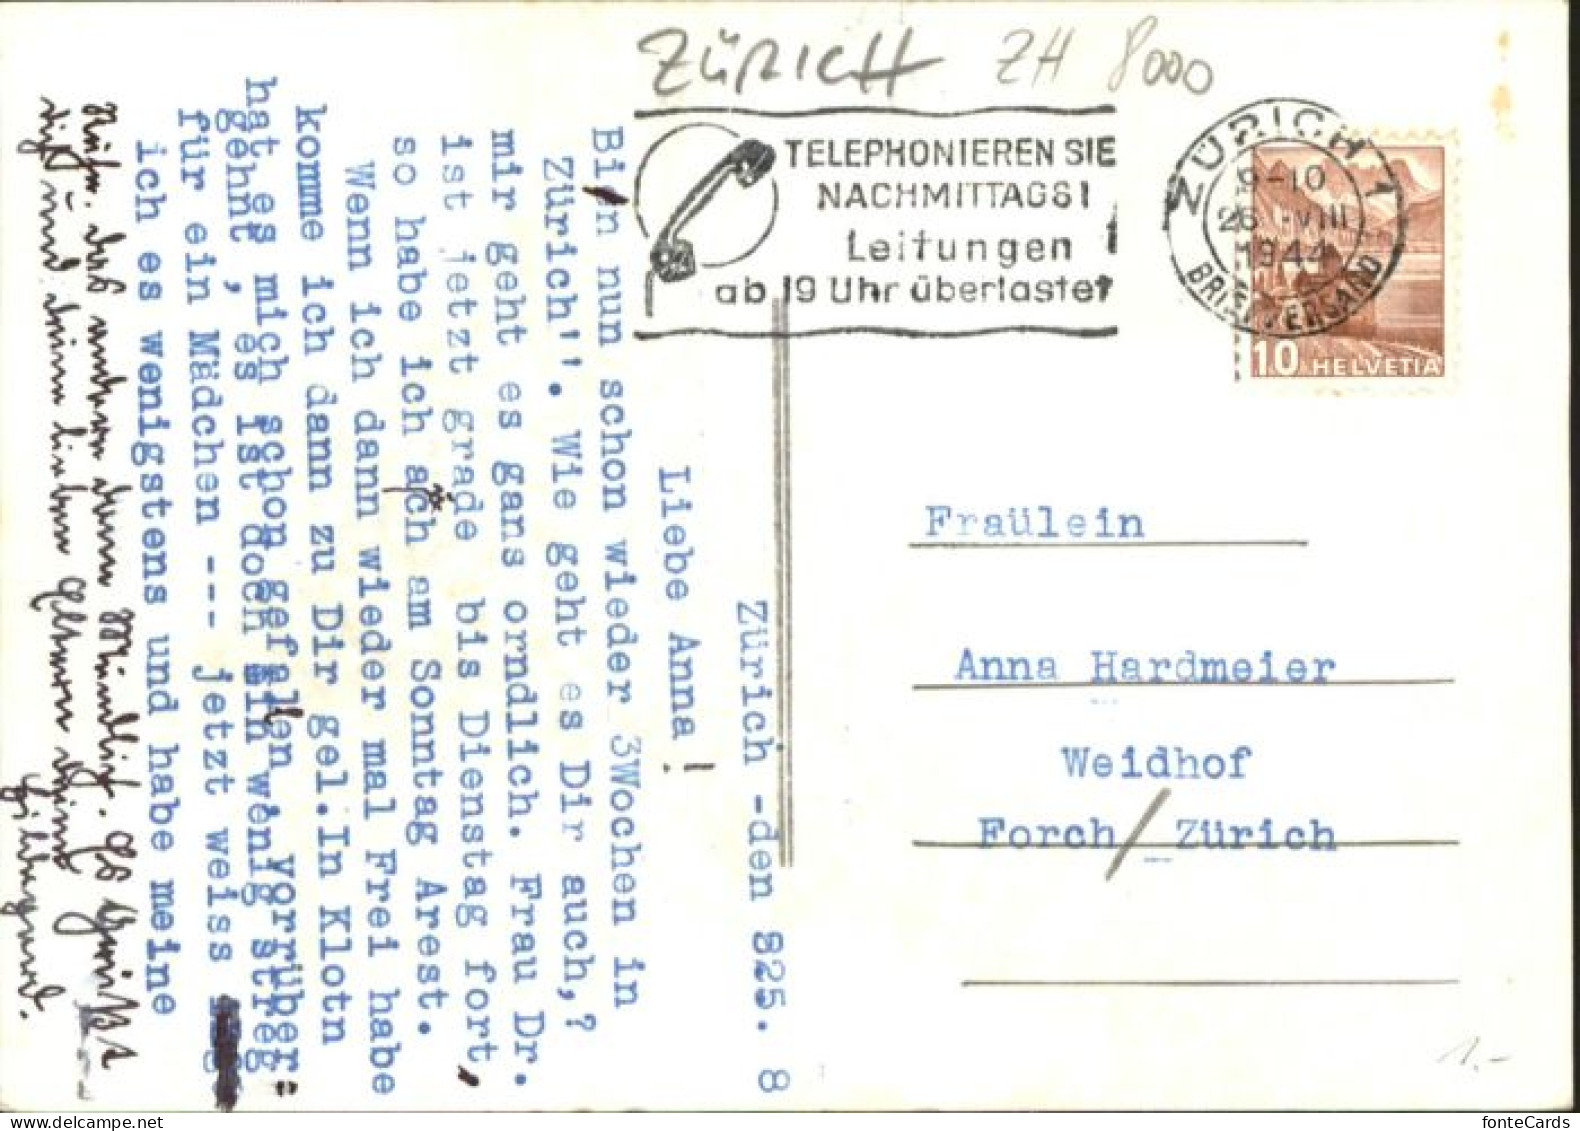 ZÜRICH ZH 8000
TELEPHONIEREN SIE
NACHMITTAGS!
Leitungen
ab 19 Uhr überlastet
ZÜRICH 1
9-10
26.VIII
1944
BRIEFVERSAND
10 HELVETIA
Zürich -den S25. 8
Liebe Anna!
Bin nun schon wieder 3Wochen in
Zürich''. Wie geht es Dir auch,?
mir geht es gans orndlich. Frau Dr.
ist jetzt grade bis Dienstag fort,
so habe ich äch am Sonntag Arest.
Wenn ich dann wieder mal Frei habe
komme ich dann zu Dir gel.In Klotn
hat es mich schon gefallen. Vorrüber:
gehnt , es ist doch ein wenig streg
für ein Mädchen --- jetzt weiss
ich es wenigstens und habe meine
Ruhe. das andere dann Mündlich. Es Grüsst
dich und deine lieben Eltern deine
Fraülein
Anna Hardmeier
Weidhof
Forch/ Zürich
1.-
fonteCards